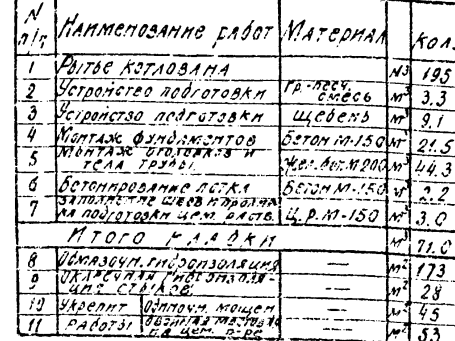 N п/п Наименование работ Материал Кол.
1 Рытье котлована м3 195
2 Устройство подготовки гр.-песч. смесь м3 3.3
3 Устройство подготовки щебень м3 9.1
4 Монтаж фундаментов Бетон М-150 м3 21.5
5 Монтаж оголовков и тела трубы Жел.бет.М200 м3 44.3
6 Бетонирование лотка Бетон М-150 м3 2.2
7 Заполнение швов и на подготовки цем. раств. Ц.р.М-150 м3 3.0
Итого кладки м3 71.0
8 Обмазочн. гидроизоляция — м2 173
9 Оклеечная гидроизоляция стыков — м2 28
10 Укрепит Одиночн. мощен — м2 45
11 работы на цем. р-ре — м2 53